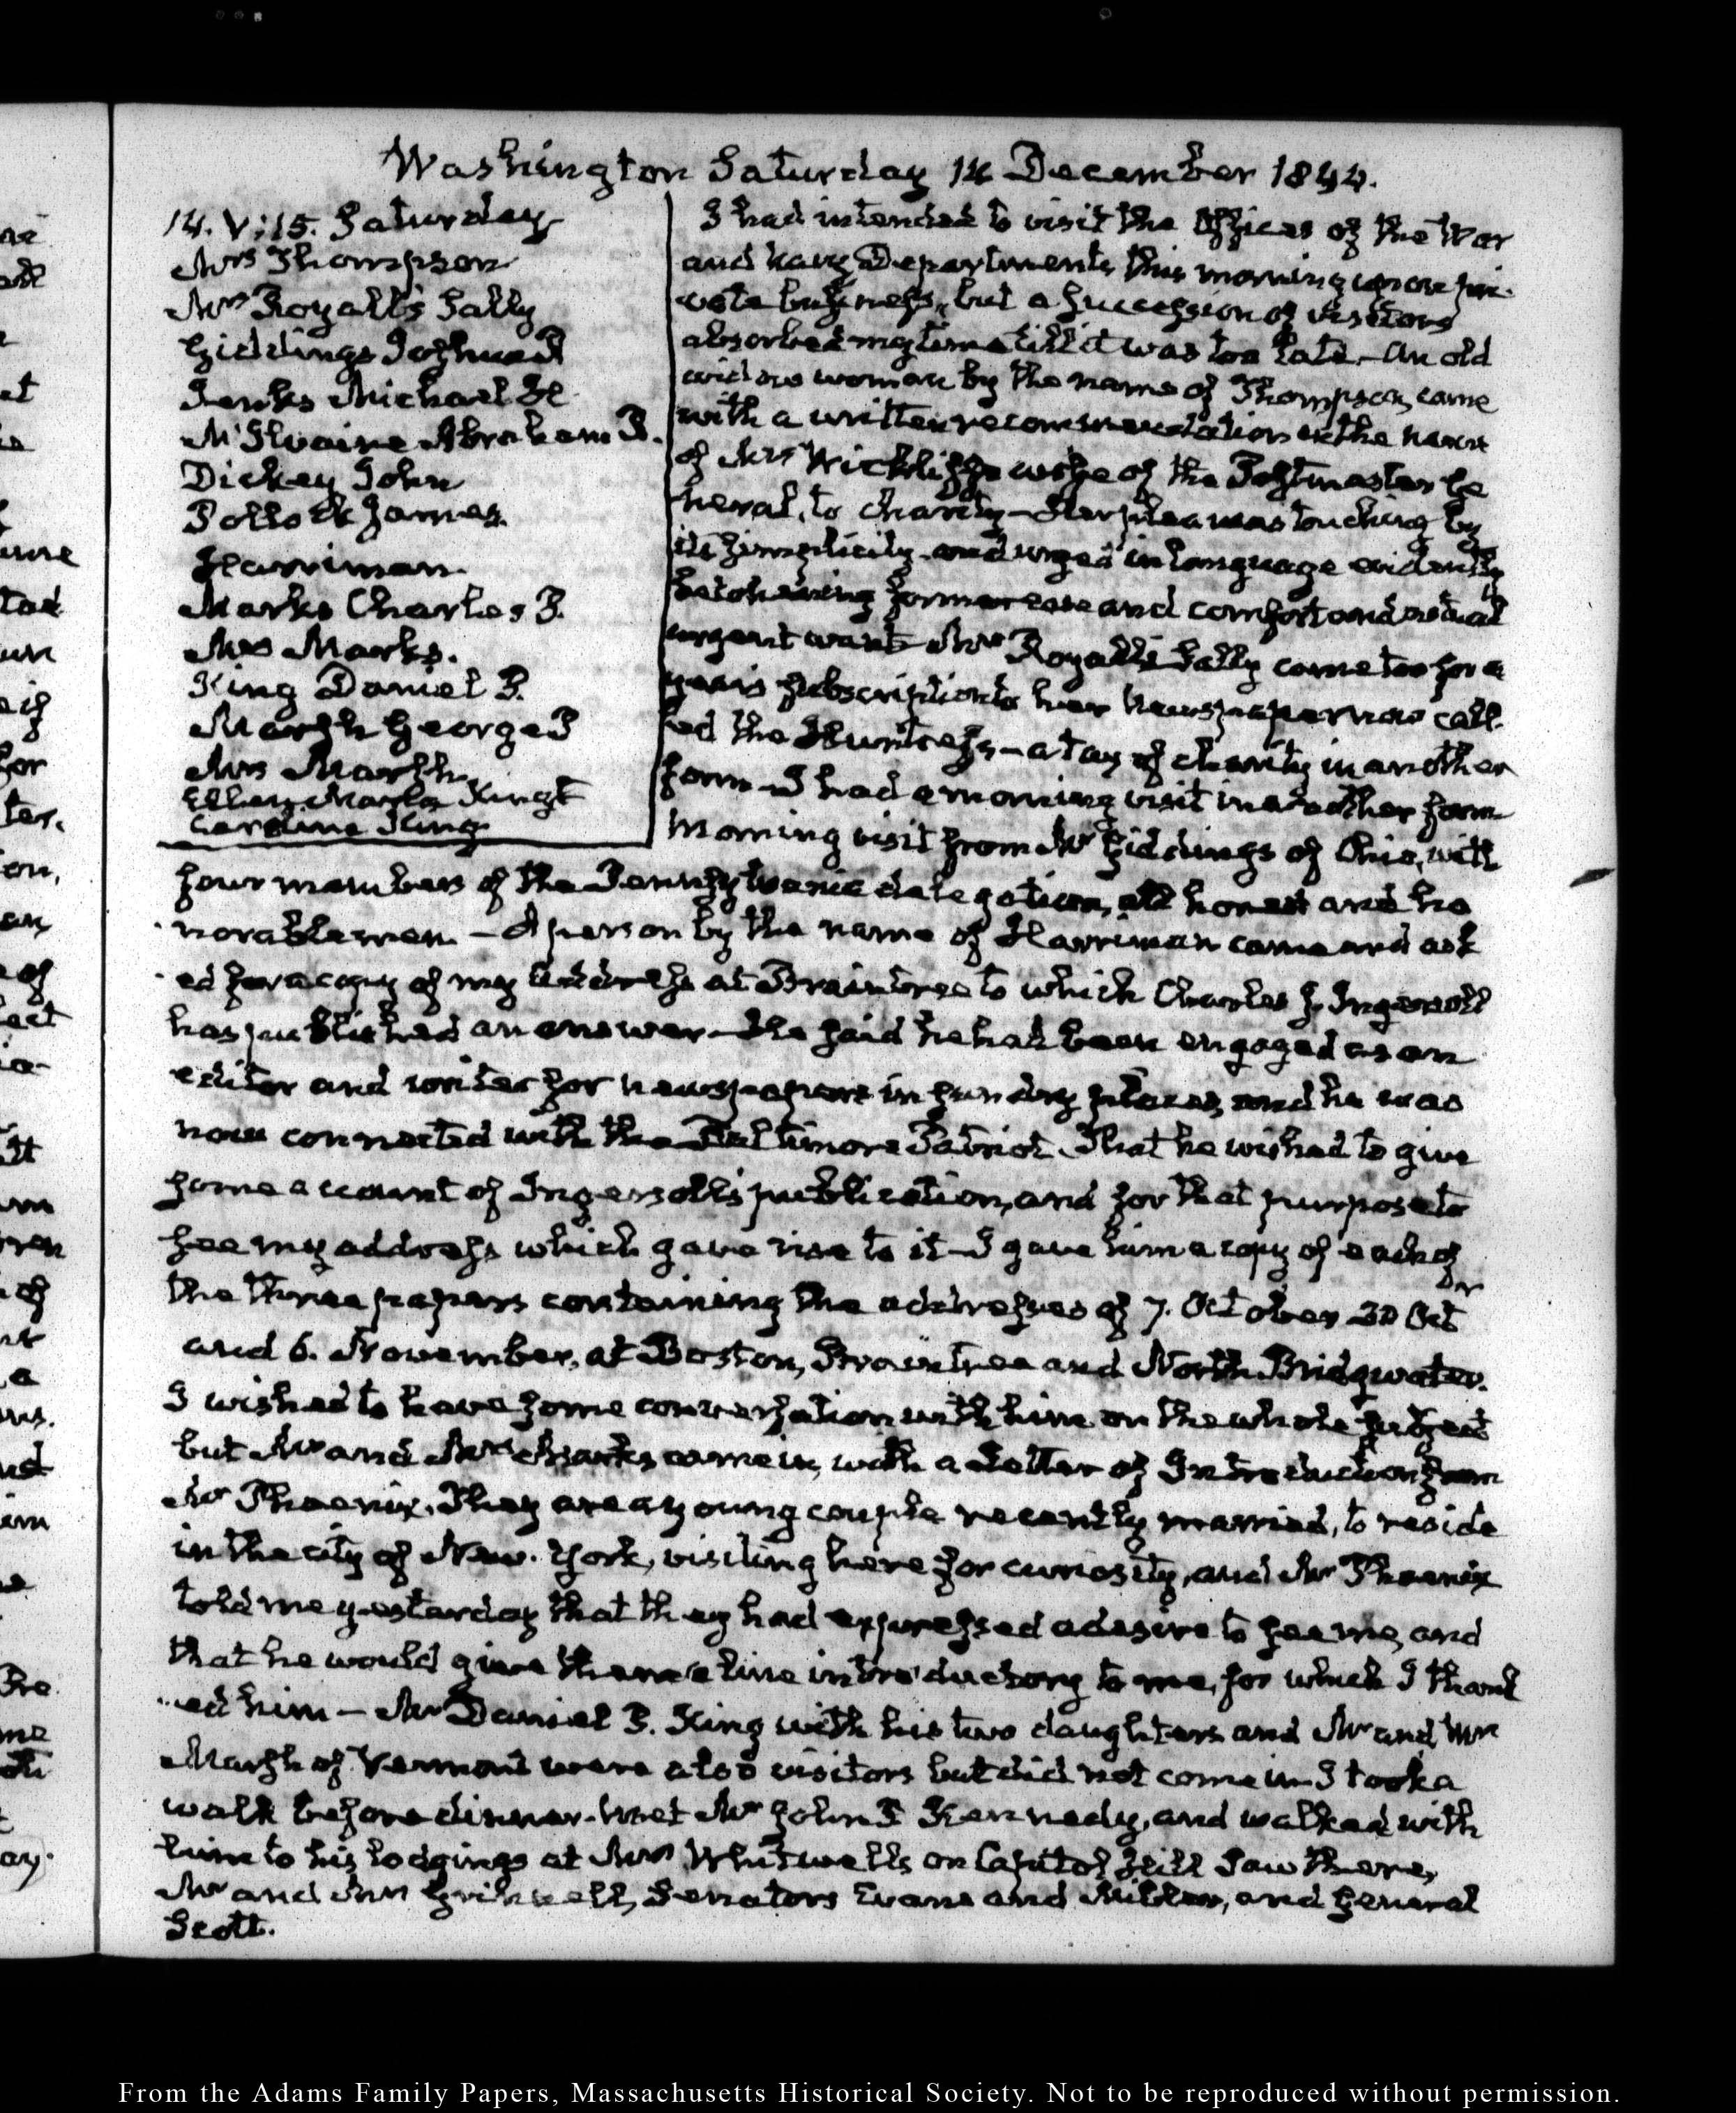 Washington Saturday 14 December 1844.
14. V:15. Saturday
Mrs Thompson
Mrs Royall's Sally
Giddings Joshua R
Jenks Michael H
McIlvaine Abraham R.
Dickey John
Pollock James.
Harriman.
Marks Charles B.
Mrs Marks.
King Daniel P.
Marsh George P
Mrs Marsh
Ellen Maria King
Caroline King
I had intended to visit the Offices of the War
and Navy Departments this morning upon pri-
vate business, but a succession of visitors
absorbed my time till it was too late. An old
widow woman by the name of Thompson, came
with a written recommendation in the name
of Mrs Wickliffe wife of the Postmaster Ge
neral, to charity — Her plea was touching by
its simplicity and urged in language evidently
betokening former ease and comfort and actual
urgent want. Mrs Royall's Sally came too for a
year's subscription to her newspaper now call-
ed the Huntress — a tax of charity in another
form. I had a morning visit in another form
morning visit from Mr Giddings of Ohio, with
four members of the Pennsylvania delegation, all honest and ho
norable men. — A person by the name of Harriman came and ask
ed for a copy of my Address at Braintree to which Charles J. Ingersoll
has published an answer — He said he had been engaged as an
editor and writer for newspapers in sundry places, and he was
now connected with the Baltimore Patriot. That he wished to give
some account of Ingersoll's publication, and for that purpose to
see my address which gave rise to it — I gave him a copy of each of
the three papers containing the addresses of 7. October 30 Oct
and 6. November, at Boston, Braintree and North Bridgwater.
I wished to have some conversation with him on the whole subject
but Mr and Mrs Marks came in, with a Letter of Introduction from
Mr Phoenix. They are a young couple recently married, to reside
in the city of New-York, visiting here for curiosity, and Mr Phoenix
told me yesterday that they had expressed a desire to see me, and
that he would give them a line introductory to me, for which I thank
ed him — Mr Daniel P. King with his two daughters and Mr and Mrs
Marsh of Vermont were also visitors but did not come in. I took a
walk before dinner. Met Mr John P Kennedy, and walked with
him to his lodgings at Mrs Whitwell's on Capitol Hill Saw there,
Mr and Mrs Grinnell, Senators Evans and Miller, and General
Scott.
From the Adams Family Papers, Massachusetts Historical Society. Not to be reproduced without permission.